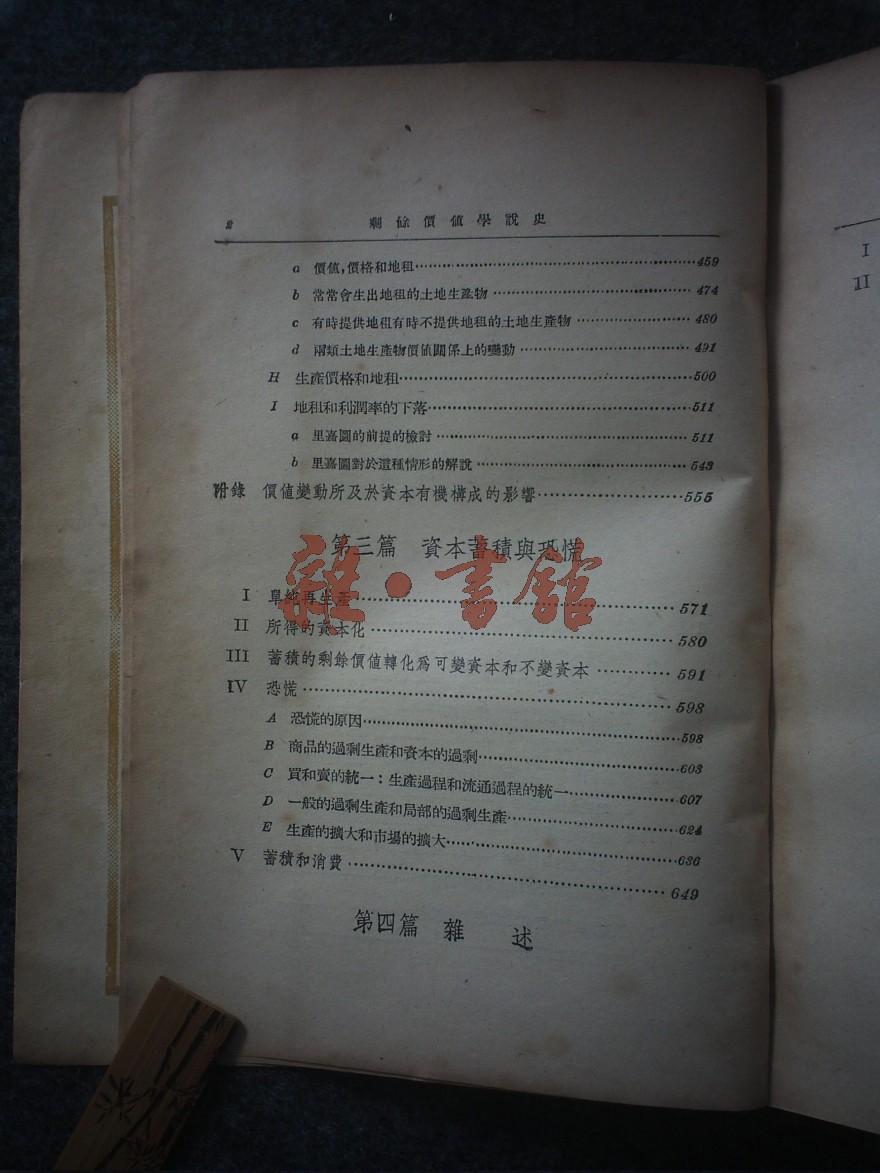 2 剩餘價值學說史
a 價值，價格和地租……459
b 常常會生出地租的土地生產物……474
c 有時提供地租有時不提供地租的土地生產物……480
d 兩類土地生產物價值關係上的變動……491
H 生產價格和地租……500
I 地租和利潤率的下落……511
a 里嘉圖的前提的檢討……511
b 里嘉圖對於這種情形的解說……543
附錄 價值變動所及於資本有機構成的影響……555
第三篇 資本蓄積與恐慌
雜·書館
I 單純再生產……571
II 所得的資本化……580
III 蓄積的剩餘價值轉化爲可變資本和不變資本……591
IV 恐慌……598
A 恐慌的原因……598
B 商品的過剩生產和資本的過剩……603
C 買和賣的統一：生產過程和流通過程的統一……607
D 一般的過剩生產和局部的過剩生產……624
E 生產的擴大和市場的擴大……636
V 蓄積和消費……649
第四篇 雜 述
I
II